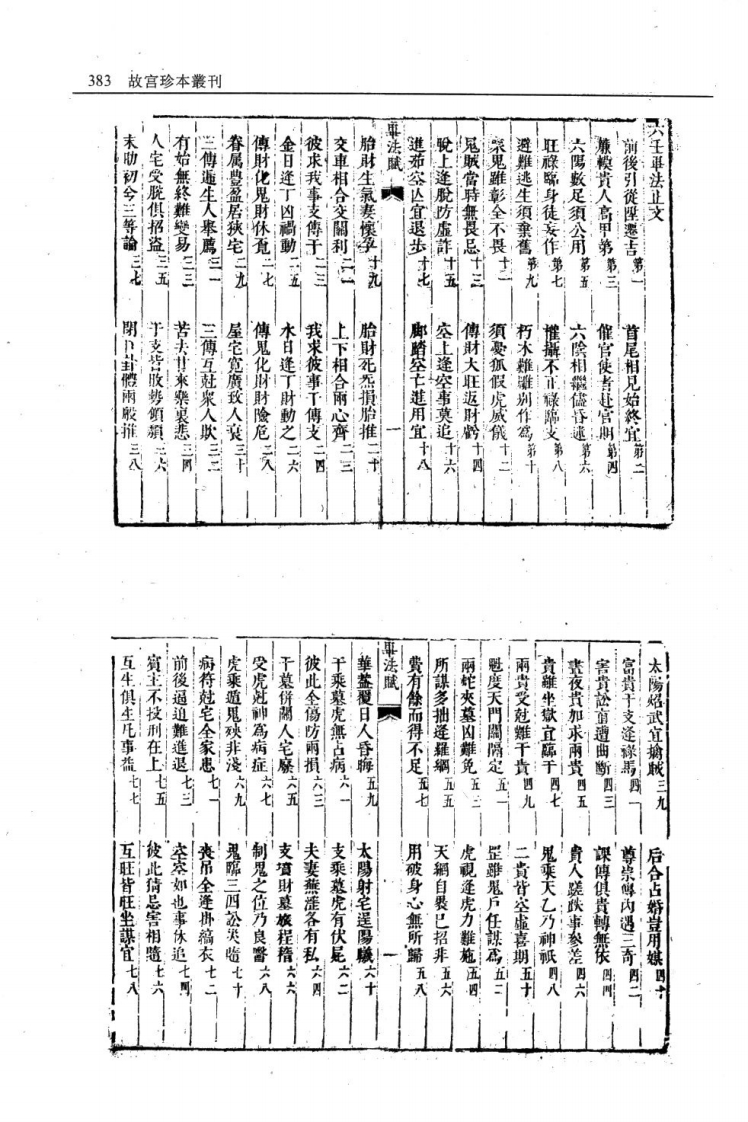 383 故宮珍本叢刊
六壬畢法正文
前後引從陞遷吉第一 首尾相見始終宜第二
簾幙貴人高甲第第三 催官使者赴官期第四
六陽數足須公用第五 六陰相繼儘昏迷第六
旺祿臨身徒妄作第七 權攝不正祿臨支第八
避難逃生須棄舊第九 朽木難雕別作爲第十
衆鬼雖彰全不畏十一 須憂狐假虎威儀十二
鬼賊當時無畏忌十三 傳財大旺返財虧十四
脫上逢脫防虛詐十五 空上逢空事莫追十六
進茹空亾宜退步十七 脚踏空亡進用宜十八
畢法賦 一
胎財生氣妻懷孕十九 胎財死炁損胎推二十
交車相合交關利二一 上下相合兩心齊二二
彼求我事支傳干二三 我求彼事干傳支二四
金日逢丁凶禍動二五 水日逢丁財動之二六
傳財化鬼財休覔二七 傳鬼化財財險危二八
眷属豐盈居狹宅二九 屋宅寬廣致人衰三十
三傳逓生人舉薦三一 三傳互尅衆人欺三二
有始無終難變易三三 苦去甘來樂裏悲三四
人宅受脫俱招盜三五 干支皆敗勢傾頹三六
末助初兮三等論三七 閉口卦體兩般推三八
太陽炤武宜擒賊三九 后合占婚豈用媒四十
富貴干支逢祿馬四一 尊崇傳內遇三奇四二
害貴訟直遭曲斷四三 課傳俱貴轉無依四四
晝夜貴加求兩貴四五 貴人蹉跌事參差四六
貴雖坐獄宜臨干四七 鬼乘天乙乃神祇四八
兩貴受尅難干貴四九 二貴皆空虛喜期五十
魁度天門關隔定五一 罡塞鬼戶任謀爲五二
兩蛇夾墓凶難免五三 虎視逢虎力難施五四
所謀多拙逢羅網五五 天網自裹已招非五六
費有餘而得不足五七 用破身心無所歸五八
畢法賦 一
華蓋覆日人昏晦五九 太陽射宅屋光輝六十
干乘墓虎無占病六一 支乘墓虎有伏屍六二
彼此全傷防兩損六三 夫妻蕪滛各有私六四
干墓併關人宅廢六五 支墳財墓旅程稽六六
受虎尅神爲病症六七 制鬼之位乃良醫六八
虎乘遁鬼殃非淺六九 鬼臨三四訟災隨七十
病符尅宅全家患七一 喪吊全逢掛縞衣七二
前後逼迫難進退七三 空空如也事休追七四
賓主不投刑在上七五 彼此猜忌害相隨七六
互生俱生凡事益七七 互旺皆旺坐謀宜七八